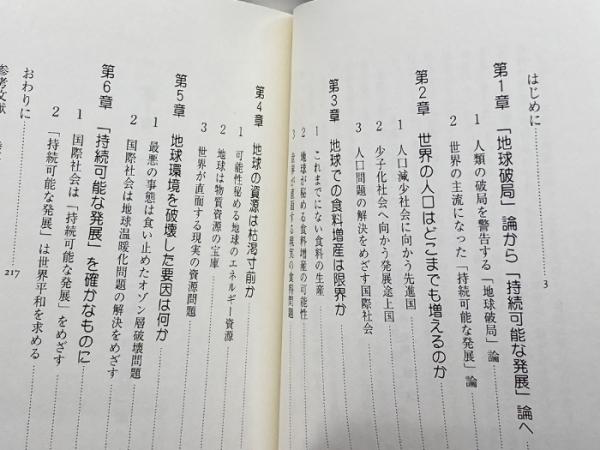 はじめに 3
第1章 「地球破局」論から「持続可能な発展」論へ
1 人類の破局を警告する「地球破局」論
2 世界の主流になった「持続可能な発展」論
第2章 世界の人口はどこまでも増えるのか
1 人口減少社会に向かう先進国
2 少子化社会へ向かう発展途上国
3 人口問題の解決をめざす国際社会
第3章 地球での食料増産は限界か
1 これまでにない食料の生産
2 地球が秘める食料増産の可能性
3 世界が直面する現実の食料問題
第4章 地球の資源は枯渇寸前か
1 可能性秘める地球のエネルギー資源
2 地球は物質資源の宝庫
3 世界が直面する現実の資源問題
第5章 地球環境を破壊した要因は何か
1 最悪の事態は食い止めたオゾン層破壊問題
2 国際社会は地球温暖化問題の解決をめざす
第6章 「持続可能な発展」を確かなものに
1 国際社会は「持続可能な発展」をめざす
2 「持続可能な発展」は世界平和を求める
おわりに 217
参考文献